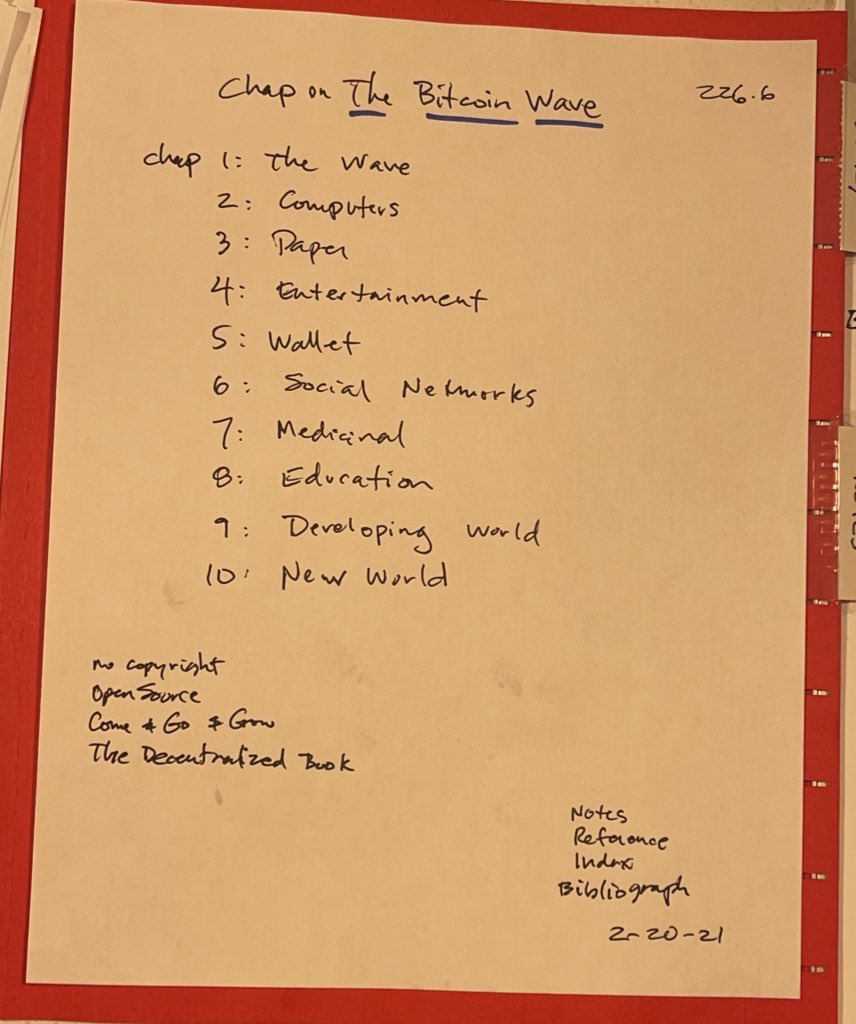 Chap on The Bitcoin Wave 226.6
chap 1: The Wave
2: Computers
3: Paper
4: Entertainment
5: Wallet
6: Social Networks
7: Medicinal
8: Education
9: Developing World
10: New World
no copyright
Open Source
Come & Go & Grow
The Decentralized Book
Notes
Reference
Index
Bibliograph
2-20-21